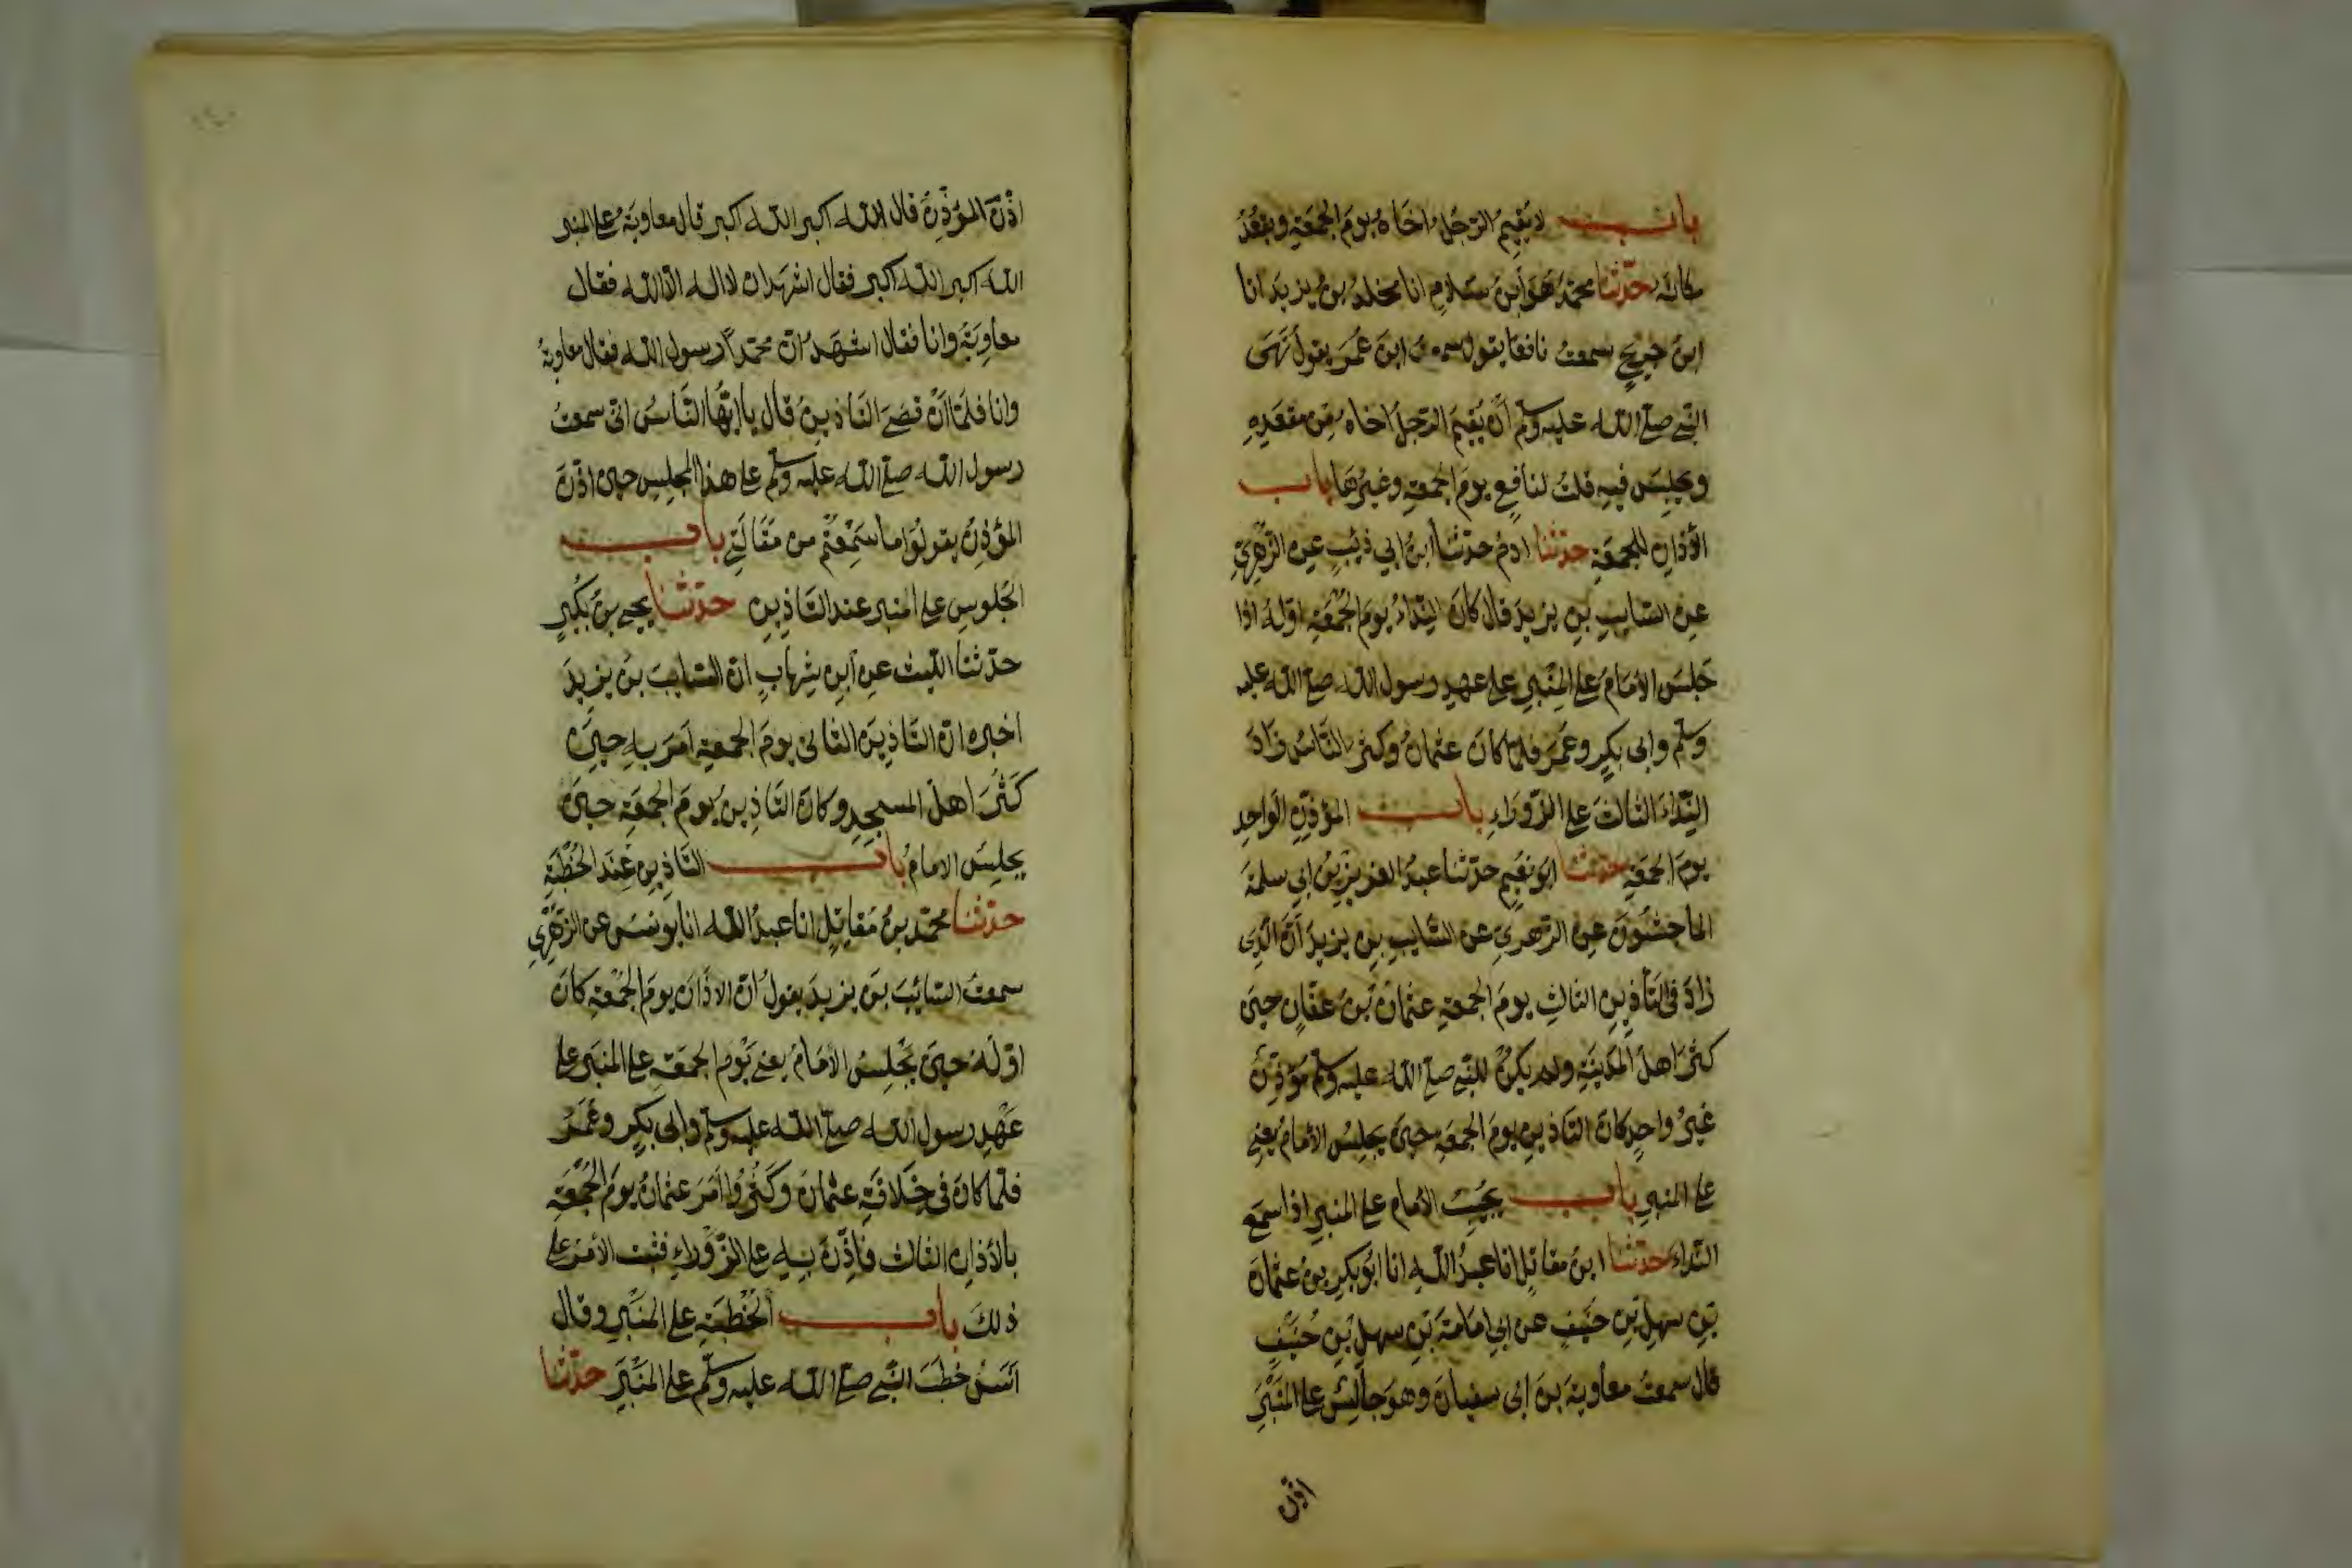 باب لا يُقيمُ الرّجُلُ اخَاهُ يومَ الجمعَةِ ويقعُدُ
مكانَه حدّثنا محمّدٌ هَوَ ابنُ سَلامٍ انا مخلدُ بنُ يزيدَ انا
ابنُ جريجٍ سمعتُ نافعًا يقول سمعتُ ابنَ عُمَرَ يقولُ نَهَى
النّبي صلى الله عليه وسلم أن يُقيمَ الرّجلُ اخاهُ مِن مقعَدِهِ
ويجلِسَ فيهِ قلتُ لنافعٍ يومَ الجمعةِ وغيرُها باب
الأذانِ للجمعَةِ حدّثنا ادمُ حدّثنا ابنُ ابي ذئبٍ عن الزّهريّ
عن السّايبِ بنِ يزيدَ قال كانَ النّداءُ يومَ الجُمُعَةِ اوّلهُ اذا
جَلسَ الأمَامُ على المِنْبَرِ على عهدِ رسول الله صلى الله عليه
وسلّم وابي بكرٍ وعُمَرَ فلما كانَ عثمانُ وكثرَ النّاسُ زادَ
النّداءَ الثالثَ على الزّورَاءِ باب المؤذّنِ الواحِدِ
يومَ الجمعَةِ حدّثنا ابو نعَيمٍ حدّثنا عبدُ العزيزِ بنُ ابي سلمَةَ
الماجِشُونَ عن الزّهري عن السّايبِ بنِ يزيدَ أنّ الّذِى
زادَ في التّأذينِ الثالثِ يومَ الجمعةِ عثمانُ بنُ عفّانٍ حينَ
كثرَ اهلُ المدَينَةِ ولم يكنْ للنّبي صلى الله عليه وسلم مُؤذّنٌ
غَيرُ واحِدٍ كانَ التّاذينُ يومَ الجمعَةِ حينَ يجلِسُ الأمَامُ يعنى
على المنبرِ باب يُجيبُ الأمامُ على المنبرِ اذا سمَعَ
النّداءَ حدّثنا ابنُ مقاتِلٍ انا عبدُ اللّه انا ابُو بكرِ بنُ عثمانَ
بنِ سهلِ بنِ حنَيفٍ عن ابي امامَةَ بنِ سهلِ بْنِ حُنَيْفٍ
قال سمعتُ معاويةَ بنَ ابى سفيانَ وهوَ جالِسٌ على المنَبَرِ
اذّن
اذّنَ المؤذّنُ قال الله اكبر الله اكبر قال معاويَةُ على المنبر
الله اكبر الله اكبر فقال اشهَد ان لا اله الّا الله فقال
معاويَةُ وانا فقال اشهَدُ انّ محمّداً رسول الله فقال معاويةُ
وانا فلمّا أنْ قضَى التّاذينَ قال يا ايّهُا النّاسُ انّى سمعتُ
رسول الله صلى الله عليه وسلم على هذا المجلِسِ حينَ اذّنَ
المؤذّنُ يقولُ ما سَمِعْتُم من مَقَالَتِي باب
الجُلوسِ على المنبر عند التّاذينِ حدّثنا يحيى بنُ بُكَيرٍ
حدّثنا اللّيث عن ابنِ شهابٍ انّ السّايبَ بنَ يزيدَ
اخبره انّ التّاذينَ الثانىَ يومَ الجمعةِ امَرَ بهِ حينَ
كَثُرَ اهلُ المسجِدِ وكان التّاذينُ يومَ الجمعَةِ حينَ
يجلِسُ الامامُ باب التّاذينِ عِندَ الخُطْبَةِ
حدّثنا محمّد بنُ مقاتِلٍ انا عبدُ اللّه انا يونسُ عن الزّهريّ
سمعتُ السّائبَ بنَ يزيدَ يقولُ انّ الاذَانَ يومَ الجُمْعَةِ كانَ
اوّلهُ حينَ يَجْلِسُ الأمَامُ يعنى يَوْمَ الجمعَةِ على المنبَرِ على
عَهْدِ رسول الله صلى الله عليه وسلم وابى بكرٍ وعُمَرَ
فلمّا كانَ في خِلافَةِ عثمانَ وكثُرُوا امَرَ عثمانُ يومَ الجُمُعَةِ
بالأذانِ الثالث فأذّنَ بهِ على الزّوْرَاءِ فثبت الأمرُ على
ذلكَ باب الخُطْبَةِ على المنبَرِ وقال
انَسٌ خطَبَ النّبي صلى الله عليه وسلّم على المنبَرِ حدّثنا